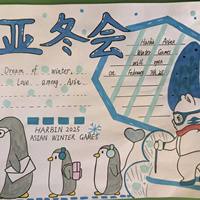 亚冬会
Dream of Winter,
Love among Asia
Harbin Asian
Winter Games
will open
on February 7th, 2025
HARBIN 2025
ASIAN WINTER GAMES